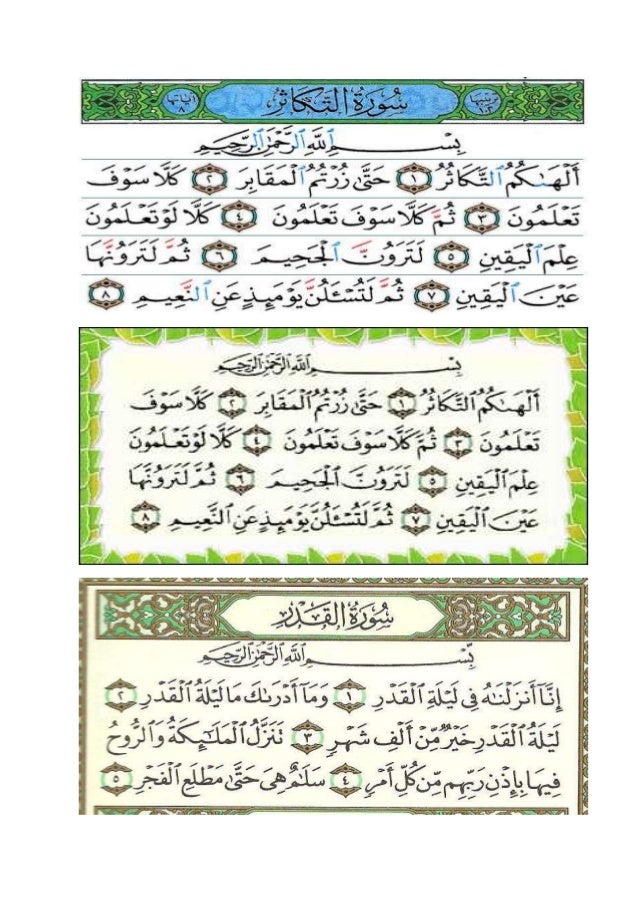 ترتيبها ١٠٢ سُورَةُ التَّكَاثُرِ آياتها ٨
بِسْمِ ٱللَّهِ ٱلرَّحْمَٰنِ ٱلرَّحِيمِ
أَلْهَىٰكُمُ ٱلتَّكَاثُرُ ١ حَتَّىٰ زُرْتُمُ ٱلْمَقَابِرَ ٢ كَلَّا سَوْفَ
تَعْلَمُونَ ٣ ثُمَّ كَلَّا سَوْفَ تَعْلَمُونَ ٤ كَلَّا لَوْ تَعْلَمُونَ
عِلْمَ ٱلْيَقِينِ ٥ لَتَرَوُنَّ ٱلْجَحِيمَ ٦ ثُمَّ لَتَرَوُنَّهَا
عَيْنَ ٱلْيَقِينِ ٧ ثُمَّ لَتُسْـَٔلُنَّ يَوْمَئِذٍ عَنِ ٱلنَّعِيمِ ٨
بِسْمِ ٱللَّهِ ٱلرَّحْمَٰنِ ٱلرَّحِيمِ
أَلْهَىٰكُمُ ٱلتَّكَاثُرُ ١ حَتَّىٰ زُرْتُمُ ٱلْمَقَابِرَ ٢ كَلَّا سَوْفَ
تَعْلَمُونَ ٣ ثُمَّ كَلَّا سَوْفَ تَعْلَمُونَ ٤ كَلَّا لَوْ تَعْلَمُونَ
عِلْمَ ٱلْيَقِينِ ٥ لَتَرَوُنَّ ٱلْجَحِيمَ ٦ ثُمَّ لَتَرَوُنَّهَا
عَيْنَ ٱلْيَقِينِ ٧ ثُمَّ لَتُسْـَٔلُنَّ يَوْمَئِذٍ عَنِ ٱلنَّعِيمِ ٨
سُورَةُ القَدْرِ
بِسْمِ ٱللَّهِ ٱلرَّحْمَٰنِ ٱلرَّحِيمِ
إِنَّآ أَنزَلْنَٰهُ فِى لَيْلَةِ ٱلْقَدْرِ ١ وَمَآ أَدْرَىٰكَ مَا لَيْلَةُ ٱلْقَدْرِ ٢
لَيْلَةُ ٱلْقَدْرِ خَيْرٌ مِّنْ أَلْفِ شَهْرٍ ٣ تَنَزَّلُ ٱلْمَلَٰٓئِكَةُ وَٱلرُّوحُ
فِيهَا بِإِذْنِ رَبِّهِم مِّن كُلِّ أَمْرٍ ٤ سَلَٰمٌ هِىَ حَتَّىٰ مَطْلَعِ ٱلْفَجْرِ ٥